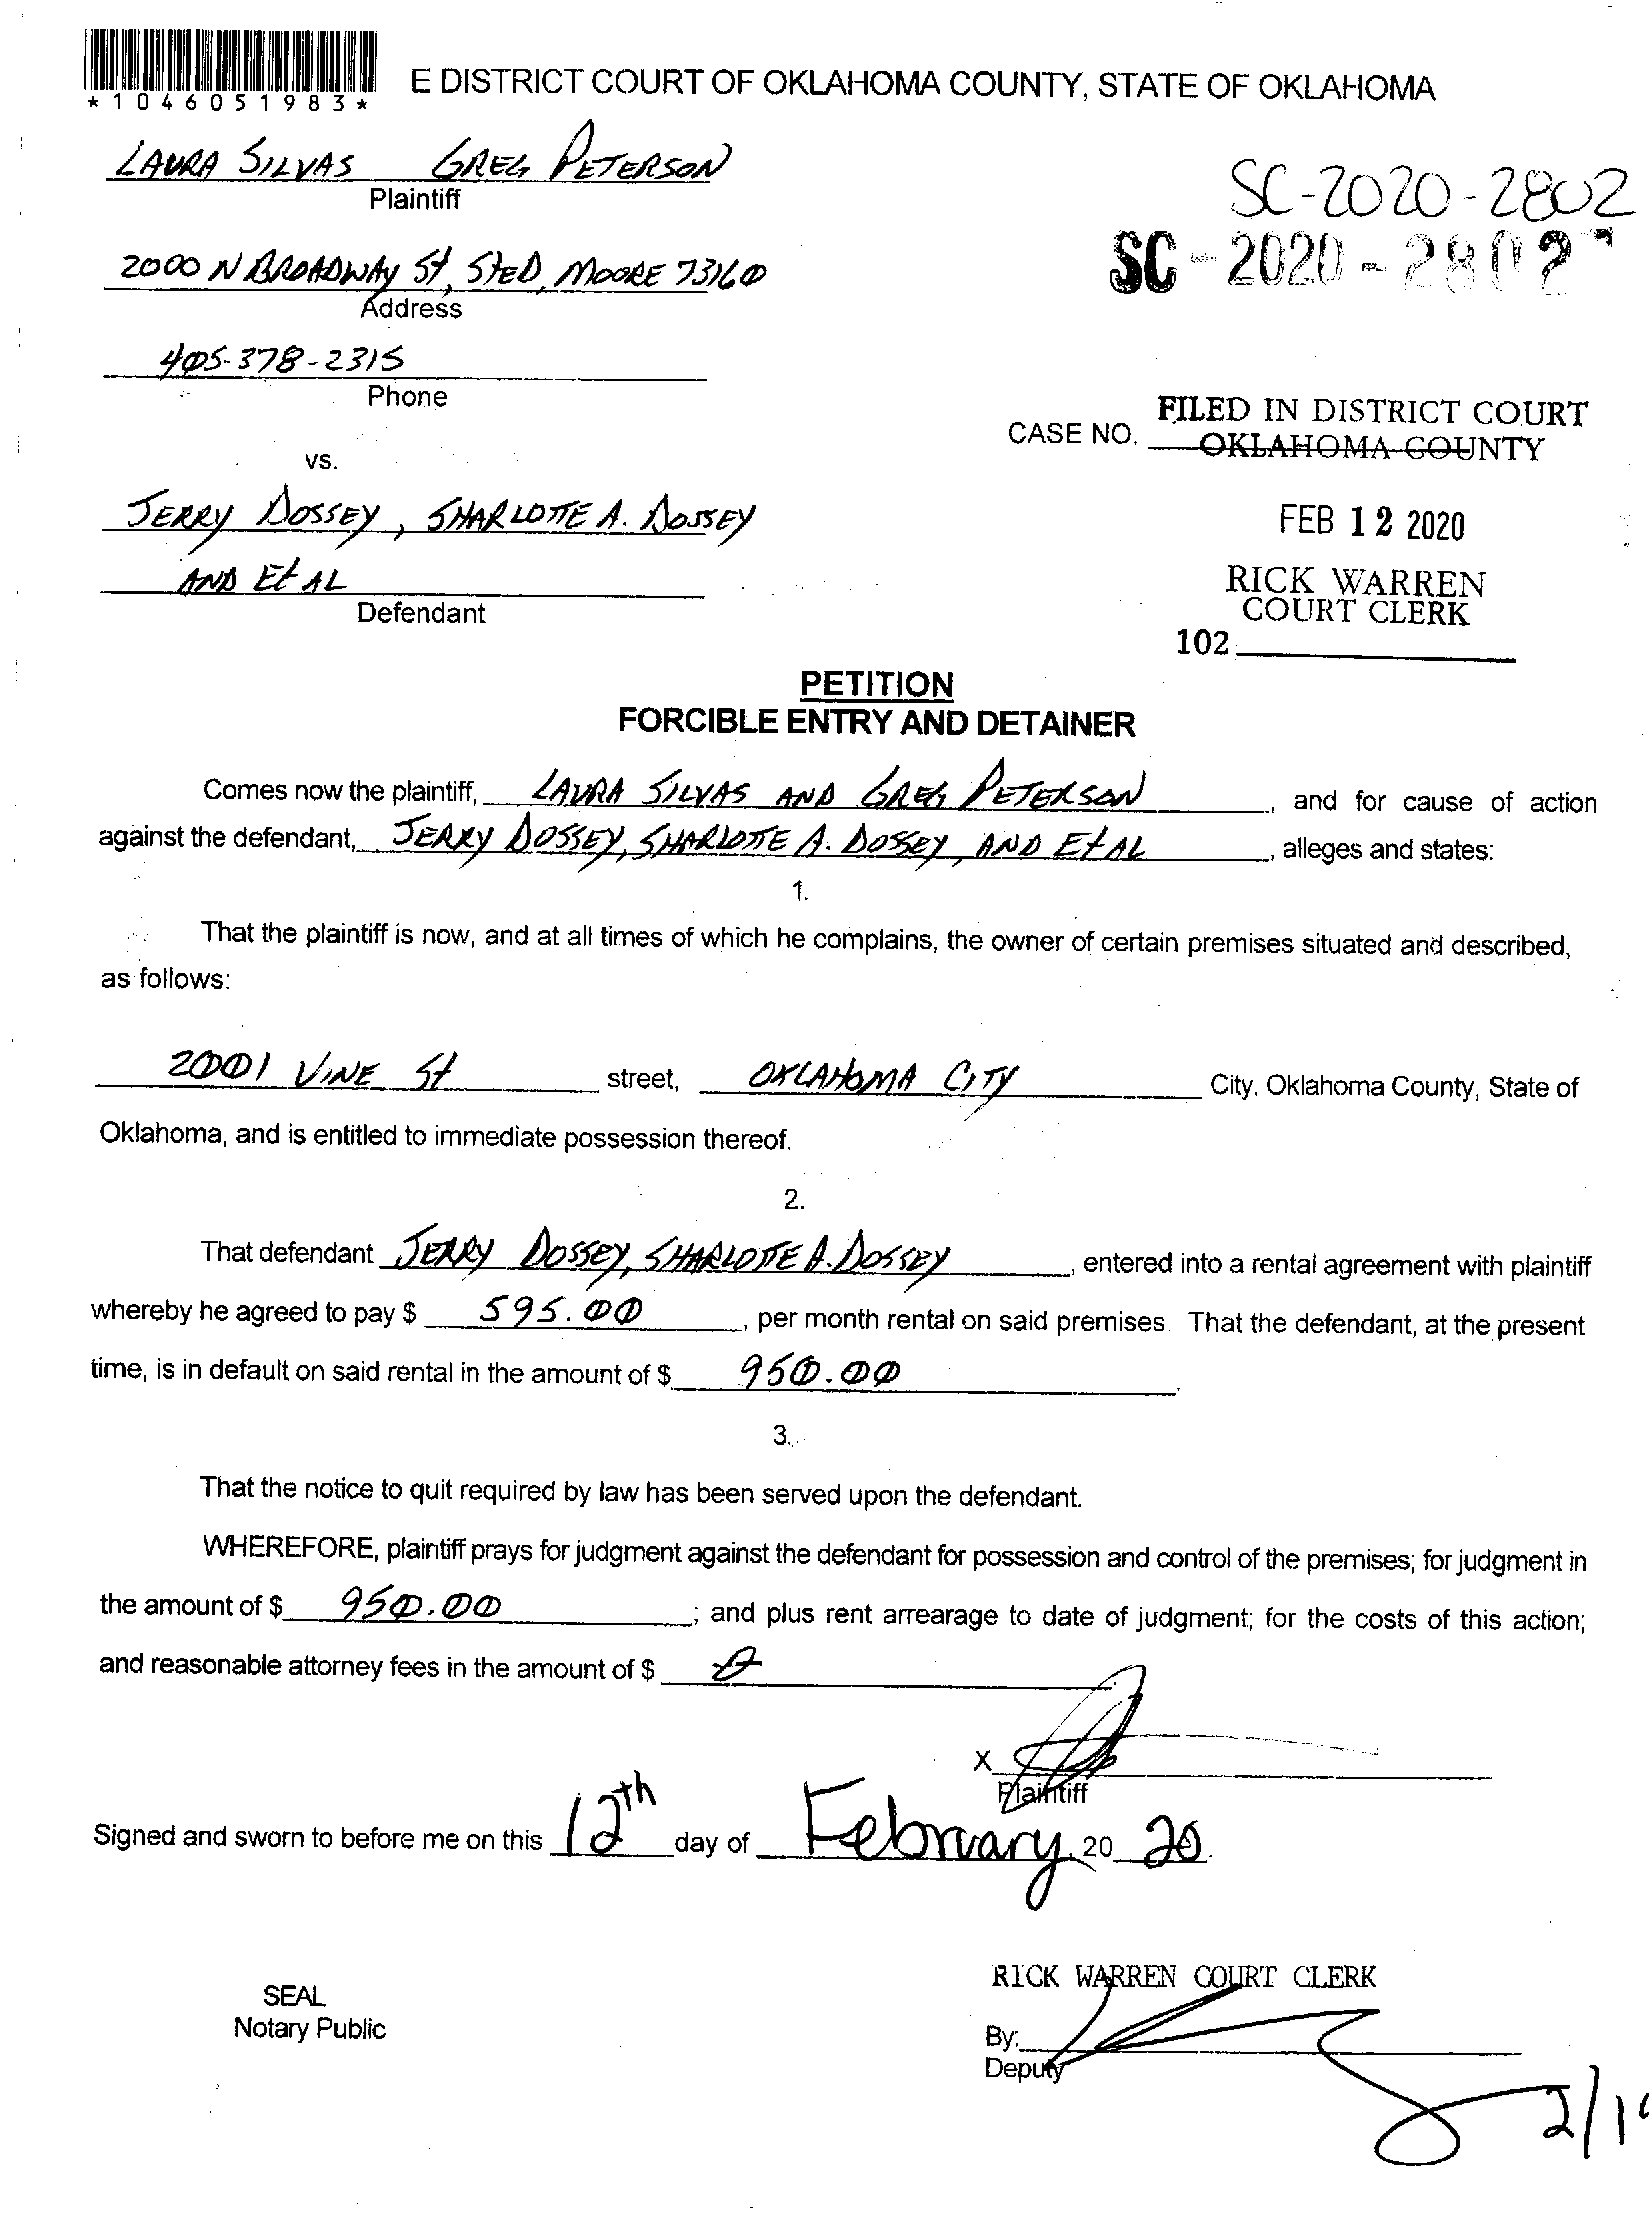 *1046051983*
E DISTRICT COURT OF OKLAHOMA COUNTY, STATE OF OKLAHOMA
LAURA SILVAS GREG PETERSON
Plaintiff
SC-2020-2802
2000 N BROADWAY St, SteD, MOORE 73160
SC-2020-2802
Address
405-378-2315
Phone
FILED IN DISTRICT COURT
CASE NO. OKLAHOMA COUNTY
vs.
JERRY DOSSEY, SHARLOTTE A. DOSSEY
FEB 12 2020
AND Et AL
RICK WARREN
Defendant
COURT CLERK
102
PETITION
FORCIBLE ENTRY AND DETAINER
Comes now the plaintiff, LAURA SILVAS AND GREG PETERSON, and for cause of action
against the defendant, JERRY DOSSEY, SHARLOTTE A. DOSSEY, AND Et AL, alleges and states:
1.
That the plaintiff is now, and at all times of which he complains, the owner of certain premises situated and described,
as follows:
2001 VINE St street, OKLAHOMA CITY City, Oklahoma County, State of
Oklahoma, and is entitled to immediate possession thereof.
2.
That defendant JERRY DOSSEY, SHARLOTTE A. DOSSEY, entered into a rental agreement with plaintiff
whereby he agreed to pay $ 595.00, per month rental on said premises. That the defendant, at the present
time, is in default on said rental in the amount of $ 950.00.
3.
That the notice to quit required by law has been served upon the defendant.
WHEREFORE, plaintiff prays for judgment against the defendant for possession and control of the premises; for judgment in
the amount of $ 950.00; and plus rent arrearage to date of judgment; for the costs of this action;
and reasonable attorney fees in the amount of $ 0
X
Plaintiff
Signed and sworn to before me on this 12th day of February, 20 20.
RICK WARREN COURT CLERK
SEAL
Notary Public
By:
Deputy